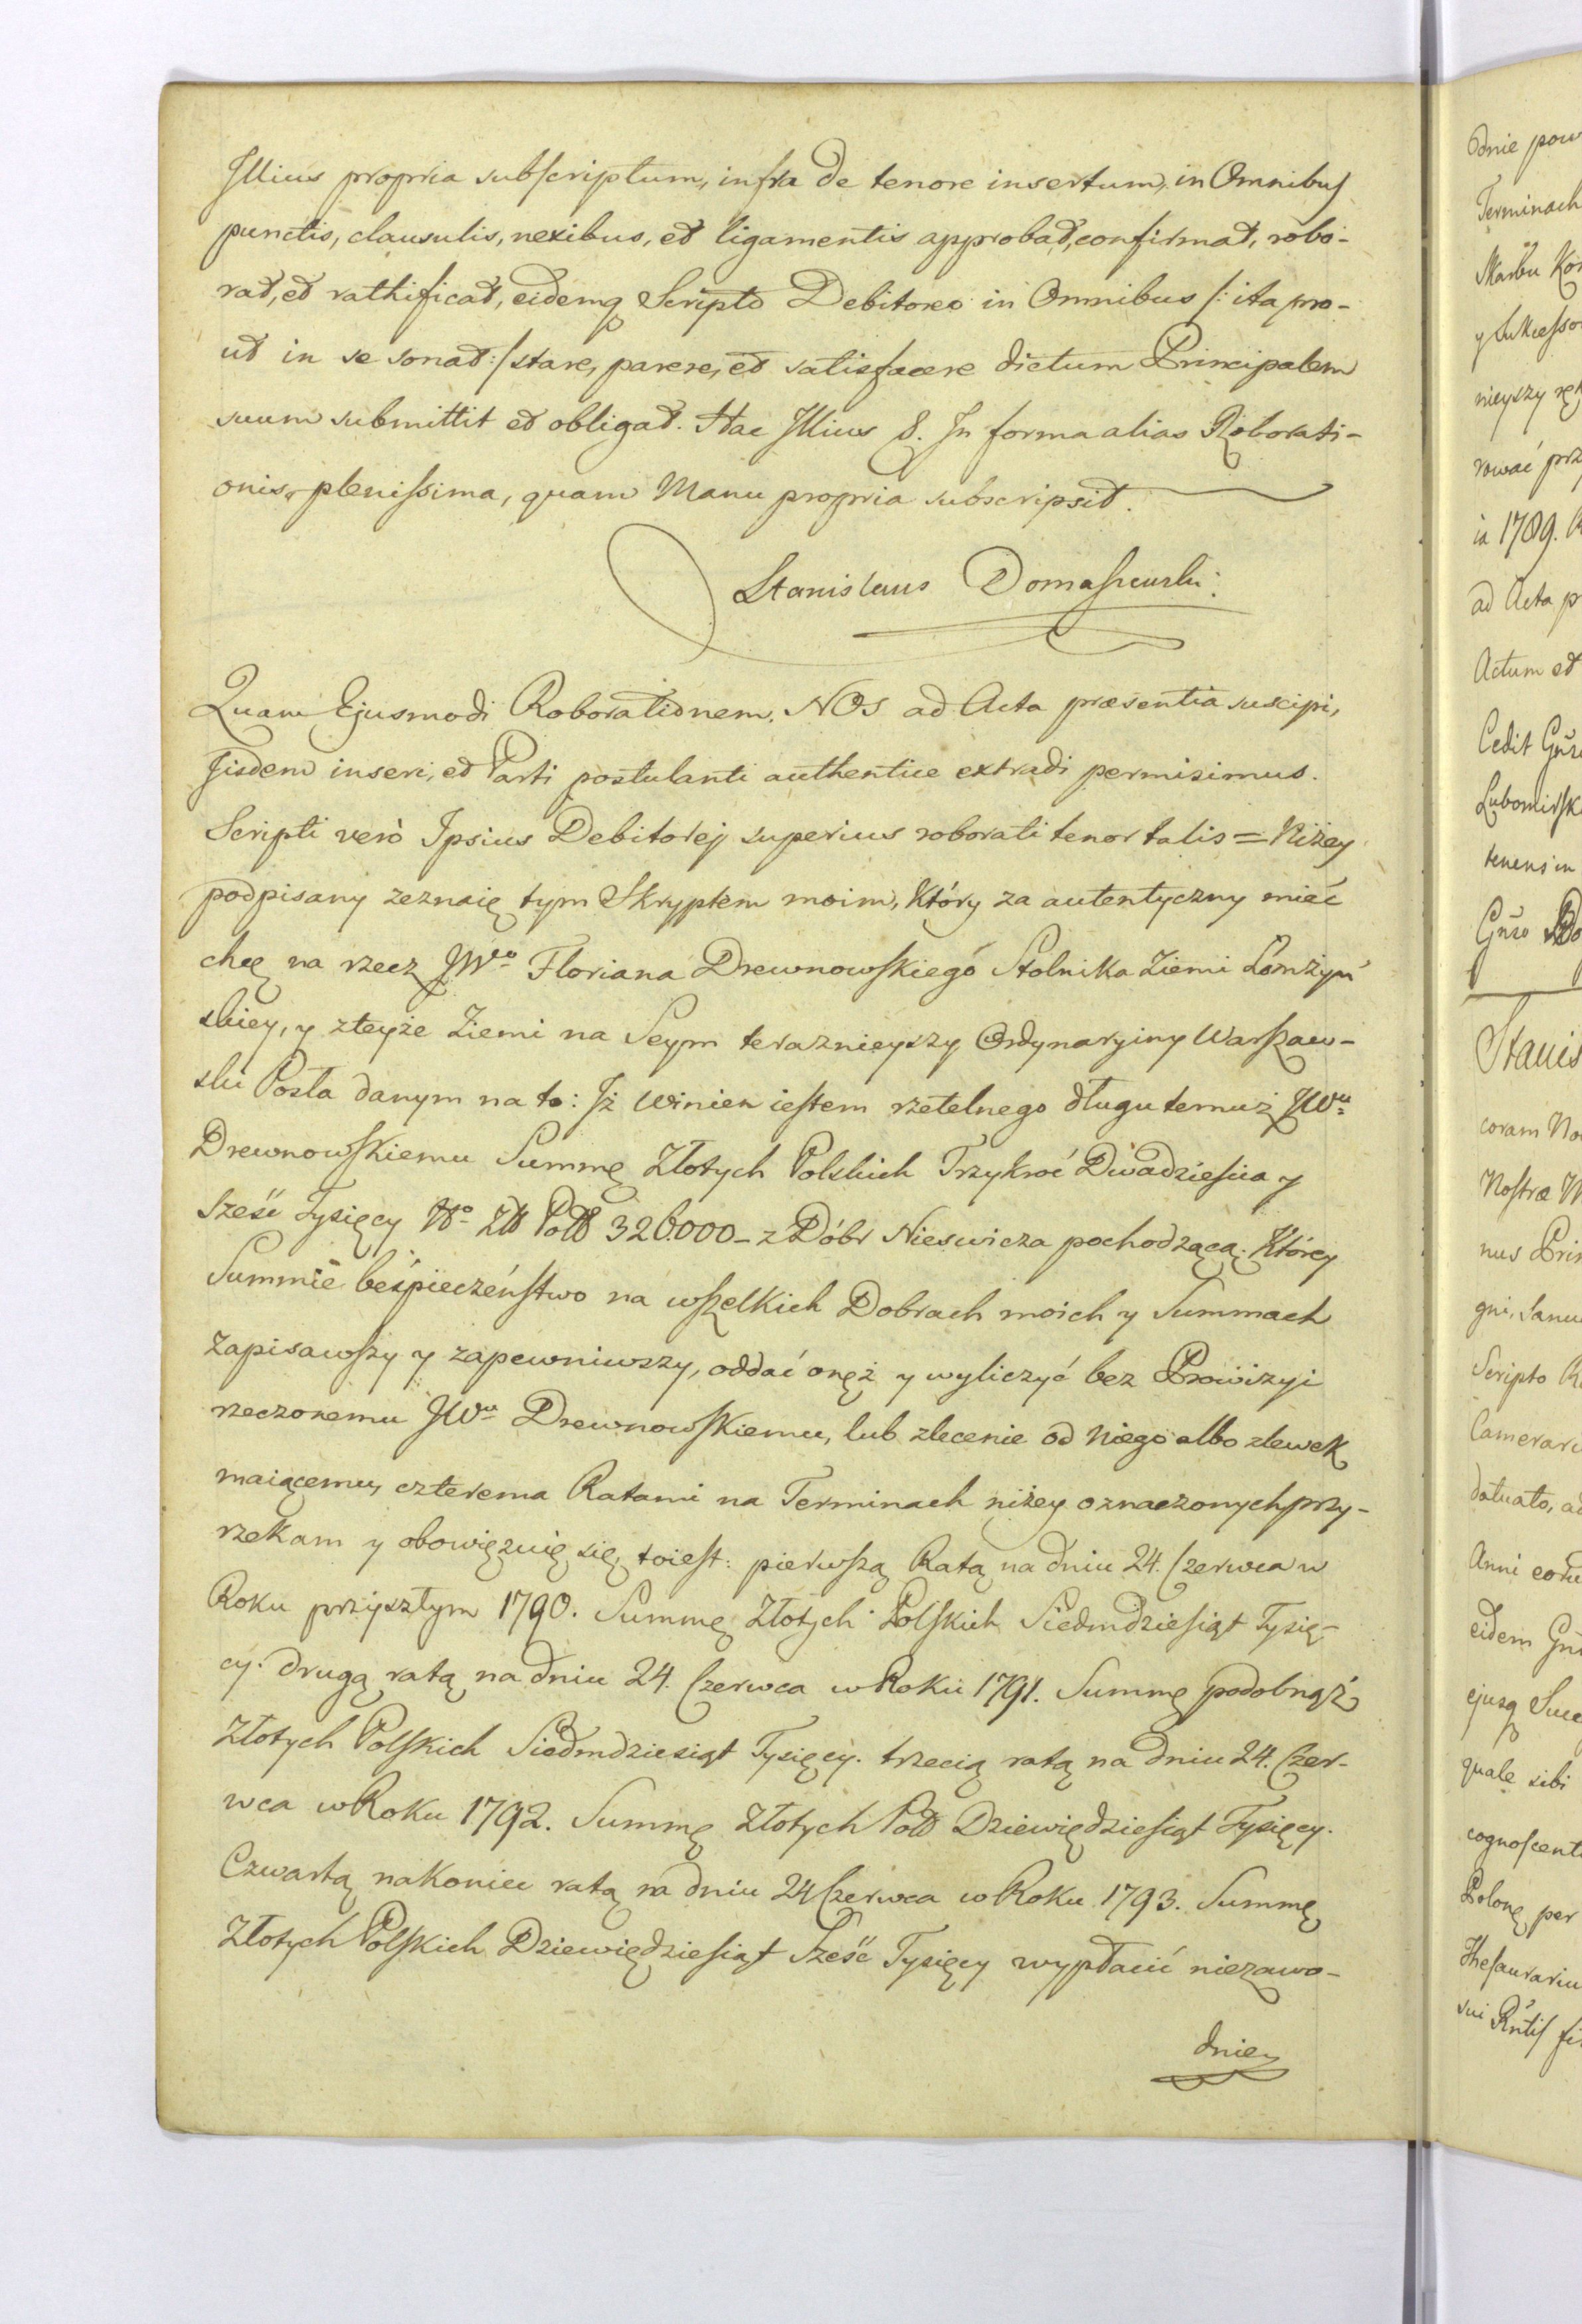 Illius propria subscriptum, infra de tenore insertum, in Omnibus
punctis, clausulis, nexibus, et ligamentis approbat, confirmat, robo-
rat, et rathificat, eidemq Scripto Debitoreo in Omnibus /: ita pro-
ut in se sonat :/ stare, parere, et satisfacere dictum Principalem
suum submittit et obligat. Hac Illius &. In forma alias Roborati-
onis plenissima, quam Manu propria subscripsit.
Stanislaus Domaszewski:
Quam Ejusmodi Roborationem, NOS ad Acta præsentia suscipi,
Iisdem inseri, et Parti postulanti authentice extradi permisimus.
Scripti verò Ipsius Debitorej superius roborati tenor talis = Niżey
podpisany zeznaię tym Skryptem moim, który za autentyczny mieć
chcę na rzecz JWo Floriana Drewnowskiego Stolnika Ziemi Łomżyń
skiey, y zteyże Ziemi na Seym teraznieyszy Ordynaryiny Warszaw-
ski Posła danym na to: Iż winien iestem rzetelnego długu temuż JWu
Drewnowskiemu Summę Złotych Polskich Trzykroć Dwadzieścia y
Sześć Tysięcy No Zll Poll 326000 - z Dóbr Nieswicza pochodzącą. Którey
Summie beśpieczeństwo na wszelkich Dobrach moich y Summach
zapisawszy y zapewniwszy, oddać onęż y wyliczyć bez Prowizyi
rzeczonemu JWu Drewnowskiemu, lub zlecenie od Niego albo zlewek
maiącemu, czterema Ratami na Terminach niżey oznaczonych przy-
rzekam y obowięzuię się, toiest: pierwszą Ratą na dniu 24. Czerwca w
Roku przyszłym 1790. Summę Złotych Polskich Siedmdziesiąt Tysię-
cy. drugą ratą na dniu 24. Czerwca w Roku 1791. Summę podobnąż
Złotych Polskich Siedmdziesiąt Tysięcy. trzecią ratą na dniu 24. Czer-
wca w Roku 1792. Summę Złotych Poll Dziewiędziesiąt Tysięcy.
Czwartą nakoniec ratą na dniu 24 Czerwca w Roku 1793. Summę
Złotych Polskich Dziewiędziesiąt Sześć Tysięcy wypłacić niezawo-
dnie
odnie pow
Terminach
Skarbu Kor
y Sukcesso
nieyszy
rować prz
ia 1789. R
ad Acta p
Actum et
Cedit
Lubomirsk
tenens in
Stanis
coram No
Nostra
nus Prin
gni,
Scripto R
Camerari
datuato, ad
Anni
eidem
ejusq Succ
quale sibi
cognoscent
Polonę per
Thesaurariu
sui